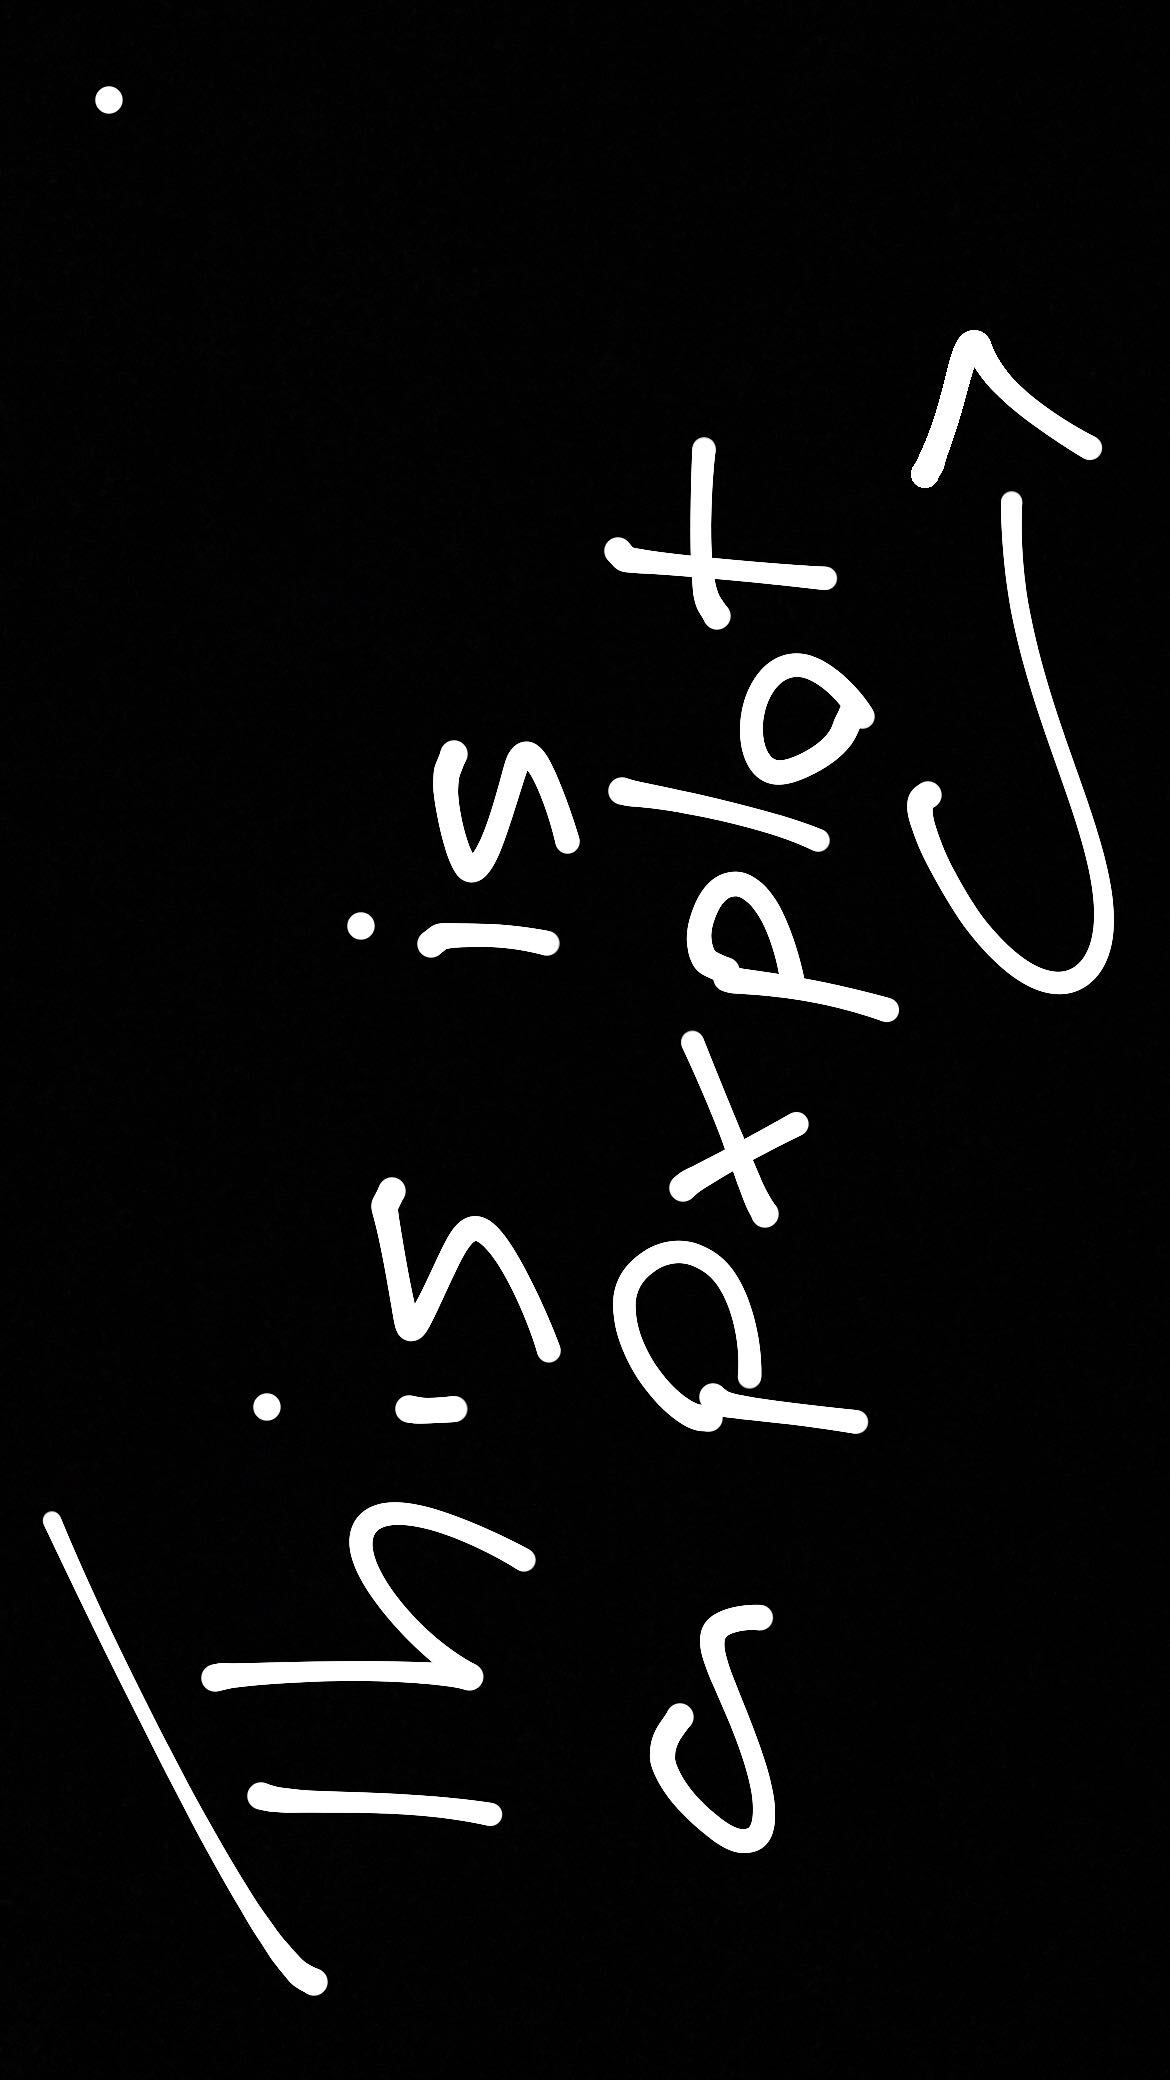 This is
a pxplot